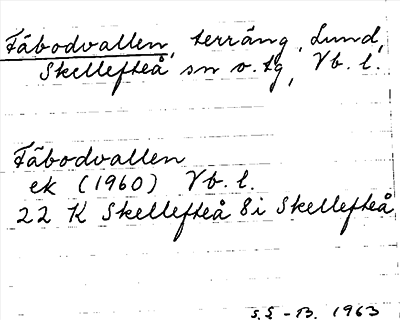 Fäbodvallen, terräng, Lund,
Skellefteå sn o. tg, Vb. l.
Fäbodvallen
ek (1960) Vb. l.
22 K Skellefteå 8i Skellefteå
S.S-B. 1963